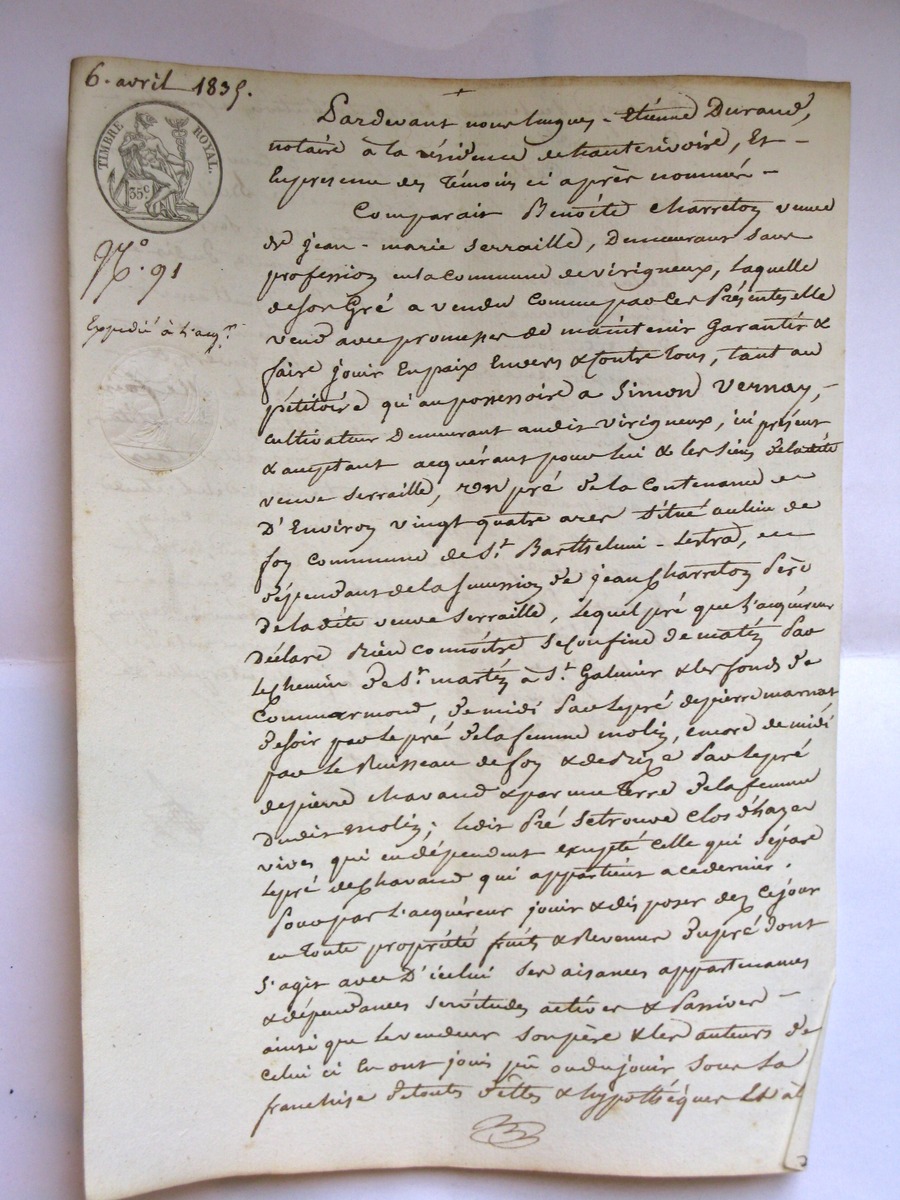 6. avril 1835.
TIMBRE ROYAL.
35 c
N.° 91
Expédié à l'acq.r
Pardevant nous hugues - Etienne Durand,
notaire à la résidence de hauterivoire, Et -
En présence des Témoins ci après nommés -
Comparait Benoîte Charretoy veuve
de jean - marie Serraille, Demeurant sans
profession en la commune de virigneux, Laquelle
de son Gré a vendu comme par ces Présentes elle
vend avec promesse de maintenir Garantir &
faire jouir En paix Envers & Contre tous, tant au
pétitoire qu'au possessoire a Simon Vernay, -
cultivateur Demeurant audit virigneux, ici présent
& acceptant acquérant pour lui & les siens de la dite
veuve Serraille, un pré de la Contenance
D'Environ vingt quatre ares situé au lieu de
foy commune de St. Barthelmi - Lestra,
dépendant de la succession de jean Charretoy Père
De la dite veuve Serraille, Lequel pré que l'acquéreur
Déclare Bien connoître Se Confine de matin Par
Le chemin de St. martin à St. Galmier & les fonds de
Commarmond, de midi Par le pré de pierre marnat
de soir par le pré de la femme molin, encore de midi
par le Ruisseau de foy & de Bize Par le pré
de pierre Chavand & par une Terre de la femme
Dudit molin; Ledit Pré se trouve clos d'hayes
vives qui en dépendent excepté celle qui sépare
Le pré de Chavand qui appartient a ce dernier.
Pour par l'acquéreur jouir & disposer dez ce jour
en Toute propriété fruits & Revenus du pré dont
s'agit avec D'icelui ses aisances appartenances
& dépendances servitudes actives & Passives -
ainsi que le vendeur son père & les auteurs de
celui ci En ont joui pu ou du jouir Sous La
franchise de toutes dettes & hypothèques Et à